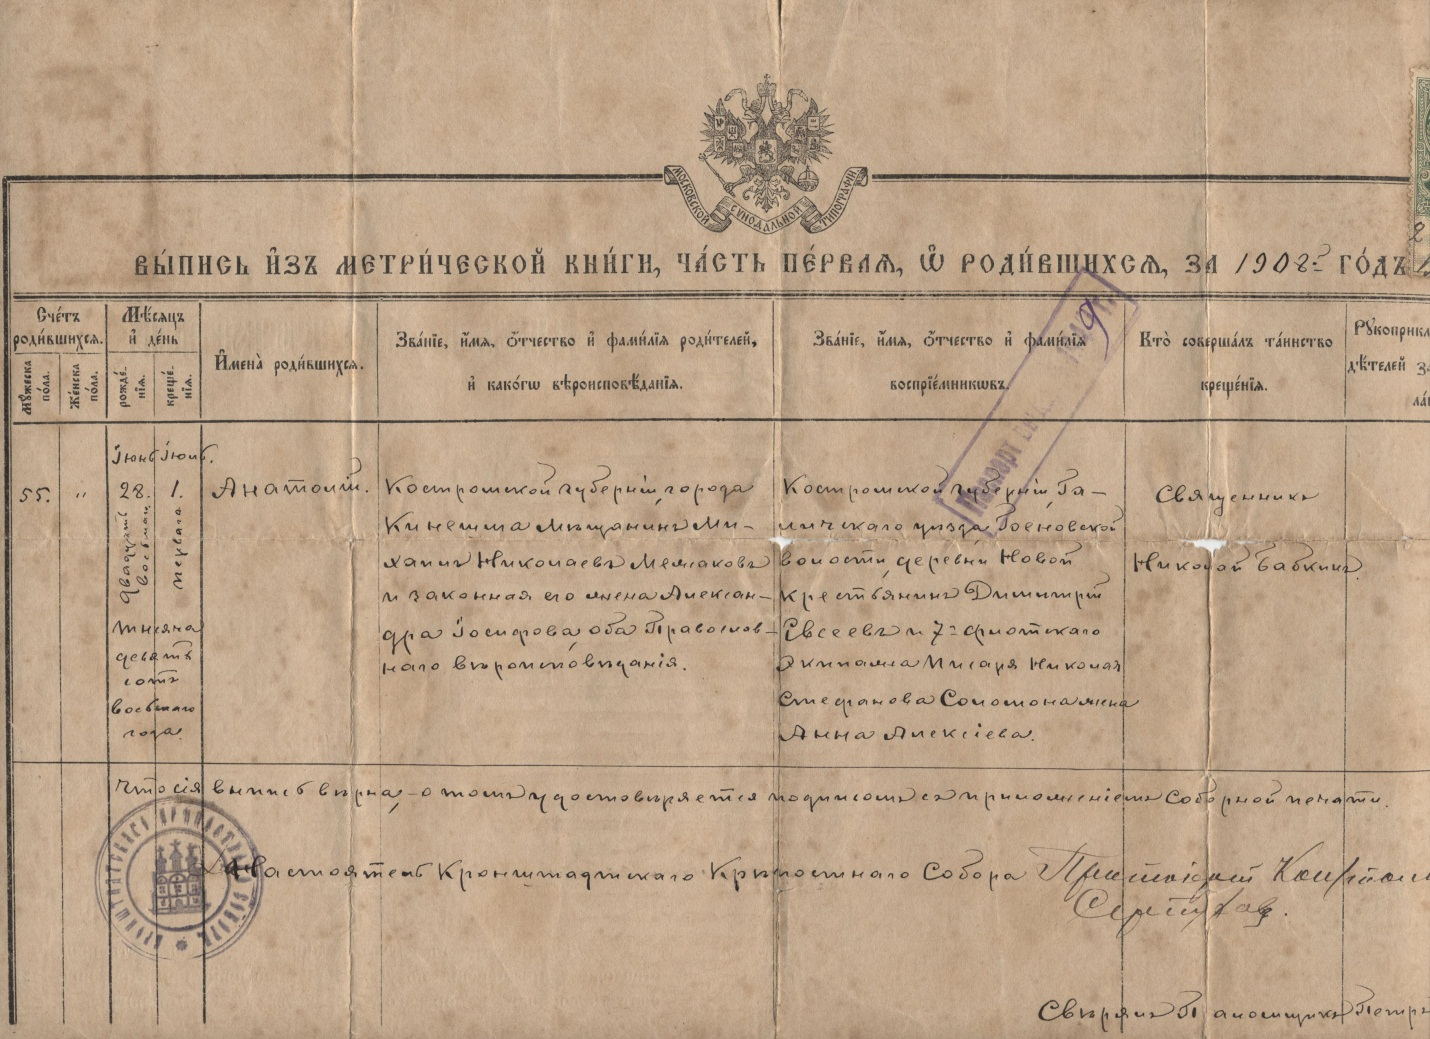 МОСКОВСКОЙ СѴНОДАЛЬНОЙ ТИПОГРАФИИ
ВЫ́ПИСЬ И҆ЗЪ МЕТРИ́ЧЕСКОЙ КНИ́ГИ, ЧА́СТЬ ПЕ́РВАѦ, Ѡ҆ РОДИ́ВШИХСѦ, ЗА 1908 ГО́ДЪ
Сче́тъ роди́вшихсѧ.
Мꙋ́жеска по́ла.
Же́нска по́ла.
Мѣ́сѧцъ и҆ де́нь
рожде́нїѧ.
креще́нїѧ.
И҆мена̀ роди́вшихсѧ.
Зва́нїе, и҆́мѧ, ѻ҆́тчество и҆ фами́лїѧ роди́телей,
и҆ како́гѡ вѣроисповѣ́данїѧ.
Зва́нїе, и҆́мѧ, ѻ҆́тчество и҆ фами́лїѧ
воспрїе́мникѡвъ.
Кто̀ соверша́лъ та́инство
креще́нїѧ.
Рꙋкоприкл
дѣ́телей
55.
"
Іюнь
28.
двадцать восьмаго
Іюль.
1.
перваго
тысяча
девять
сотъ
восьмаго
года.
Анатолій.
Костромской губерніи, города
Кинешма Мѣщанинъ Ми-
хаилъ Николаевъ Меньшаковъ
и законная его жена Алексан-
дра Іосифова, оба Православ-
наго вѣроисповѣданія.
Костромской губерніи, Га-
личскаго уѣзда
волости, деревни Новой
крестьянинъ Димитрій
Евсеевъ и 7го флотскаго
Экипажа Писаря Николая
Стефанова Соломона жена
Анна Алексіева.
Священникъ
Николай Бабкинъ.
Что сія выпись вѣрна, о томъ удостовѣряется подписомъ съ приложеніемъ Соборной печати.
Настоятель Кронштадтскаго Крѣпостнаго Собора Протоіерей
Свѣрялъ Петръ